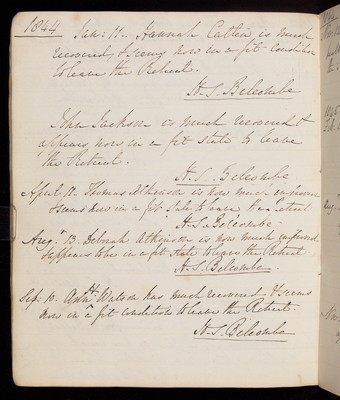 1844
Jan: 11. Hannah Catlin is much
recovered, & seems now in a fit condition
to leave the Retreat.
H. S. Belcombe
John Jackson is much recovered &
appears now in a fit state to leave
the Retreat.
H. S. Belcombe
April 17. Thomas Atkinson is now much improved
& seems now in a fit state to leave the Retreat.
H. S. Belcombe.
Aug: 13. Deborah Atkinson is now much improved
& appears to be in a fit state to leave the Retreat.
H. S. Belcombe.
Sep: 10. Watson has much recovered & seems
now in a fit condition to leave the Retreat.
H. S. Belcombe